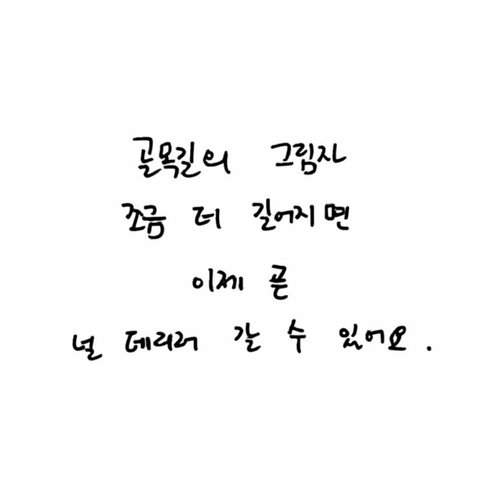 골목길의 그림자
조금 더 길어지면
이제 곧
널 데리러 갈 수 있어요.